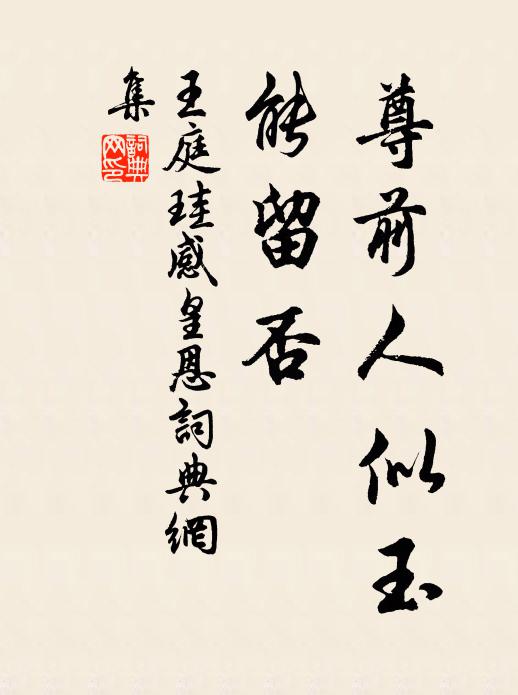 尊前人似玉
能留否
王庭珪感皇恩詞典網
集
詞典
网印